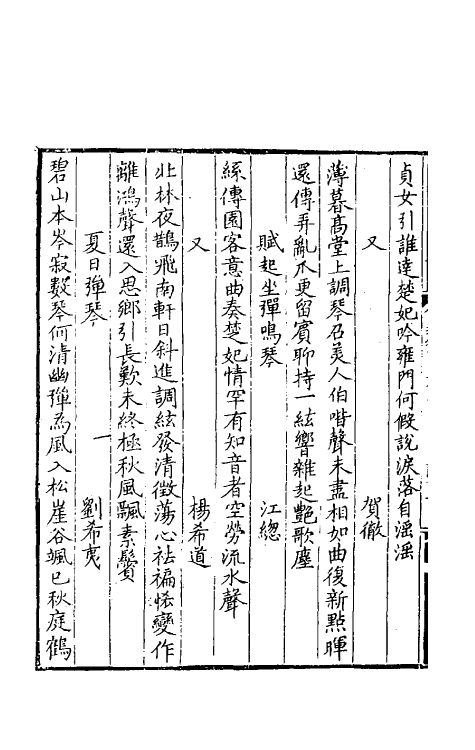 貞女引誰達楚妃吟雍門何假說淚落自淫淫
又 賀徹
薄暮高堂上調琴召美人伯喈聲未盡相如曲復新點暉
還傳弄亂爪更留賓聊持一絃響雜起艷歌塵
賦起坐彈鳴琴 江總
絲傳園客意曲奏楚妃情罕有知音者空勞流水聲
又 楊希道
北林夜鵲飛南軒日斜進調絃發清徵蕩心祛褊悋變作
離鴻聲還入思鄉引長歎未終極秋風飄素鬢
夏日彈琴 劉希夷
碧山本岑寂數琴何清幽彈為風入松崖谷颯已秋庭鶴